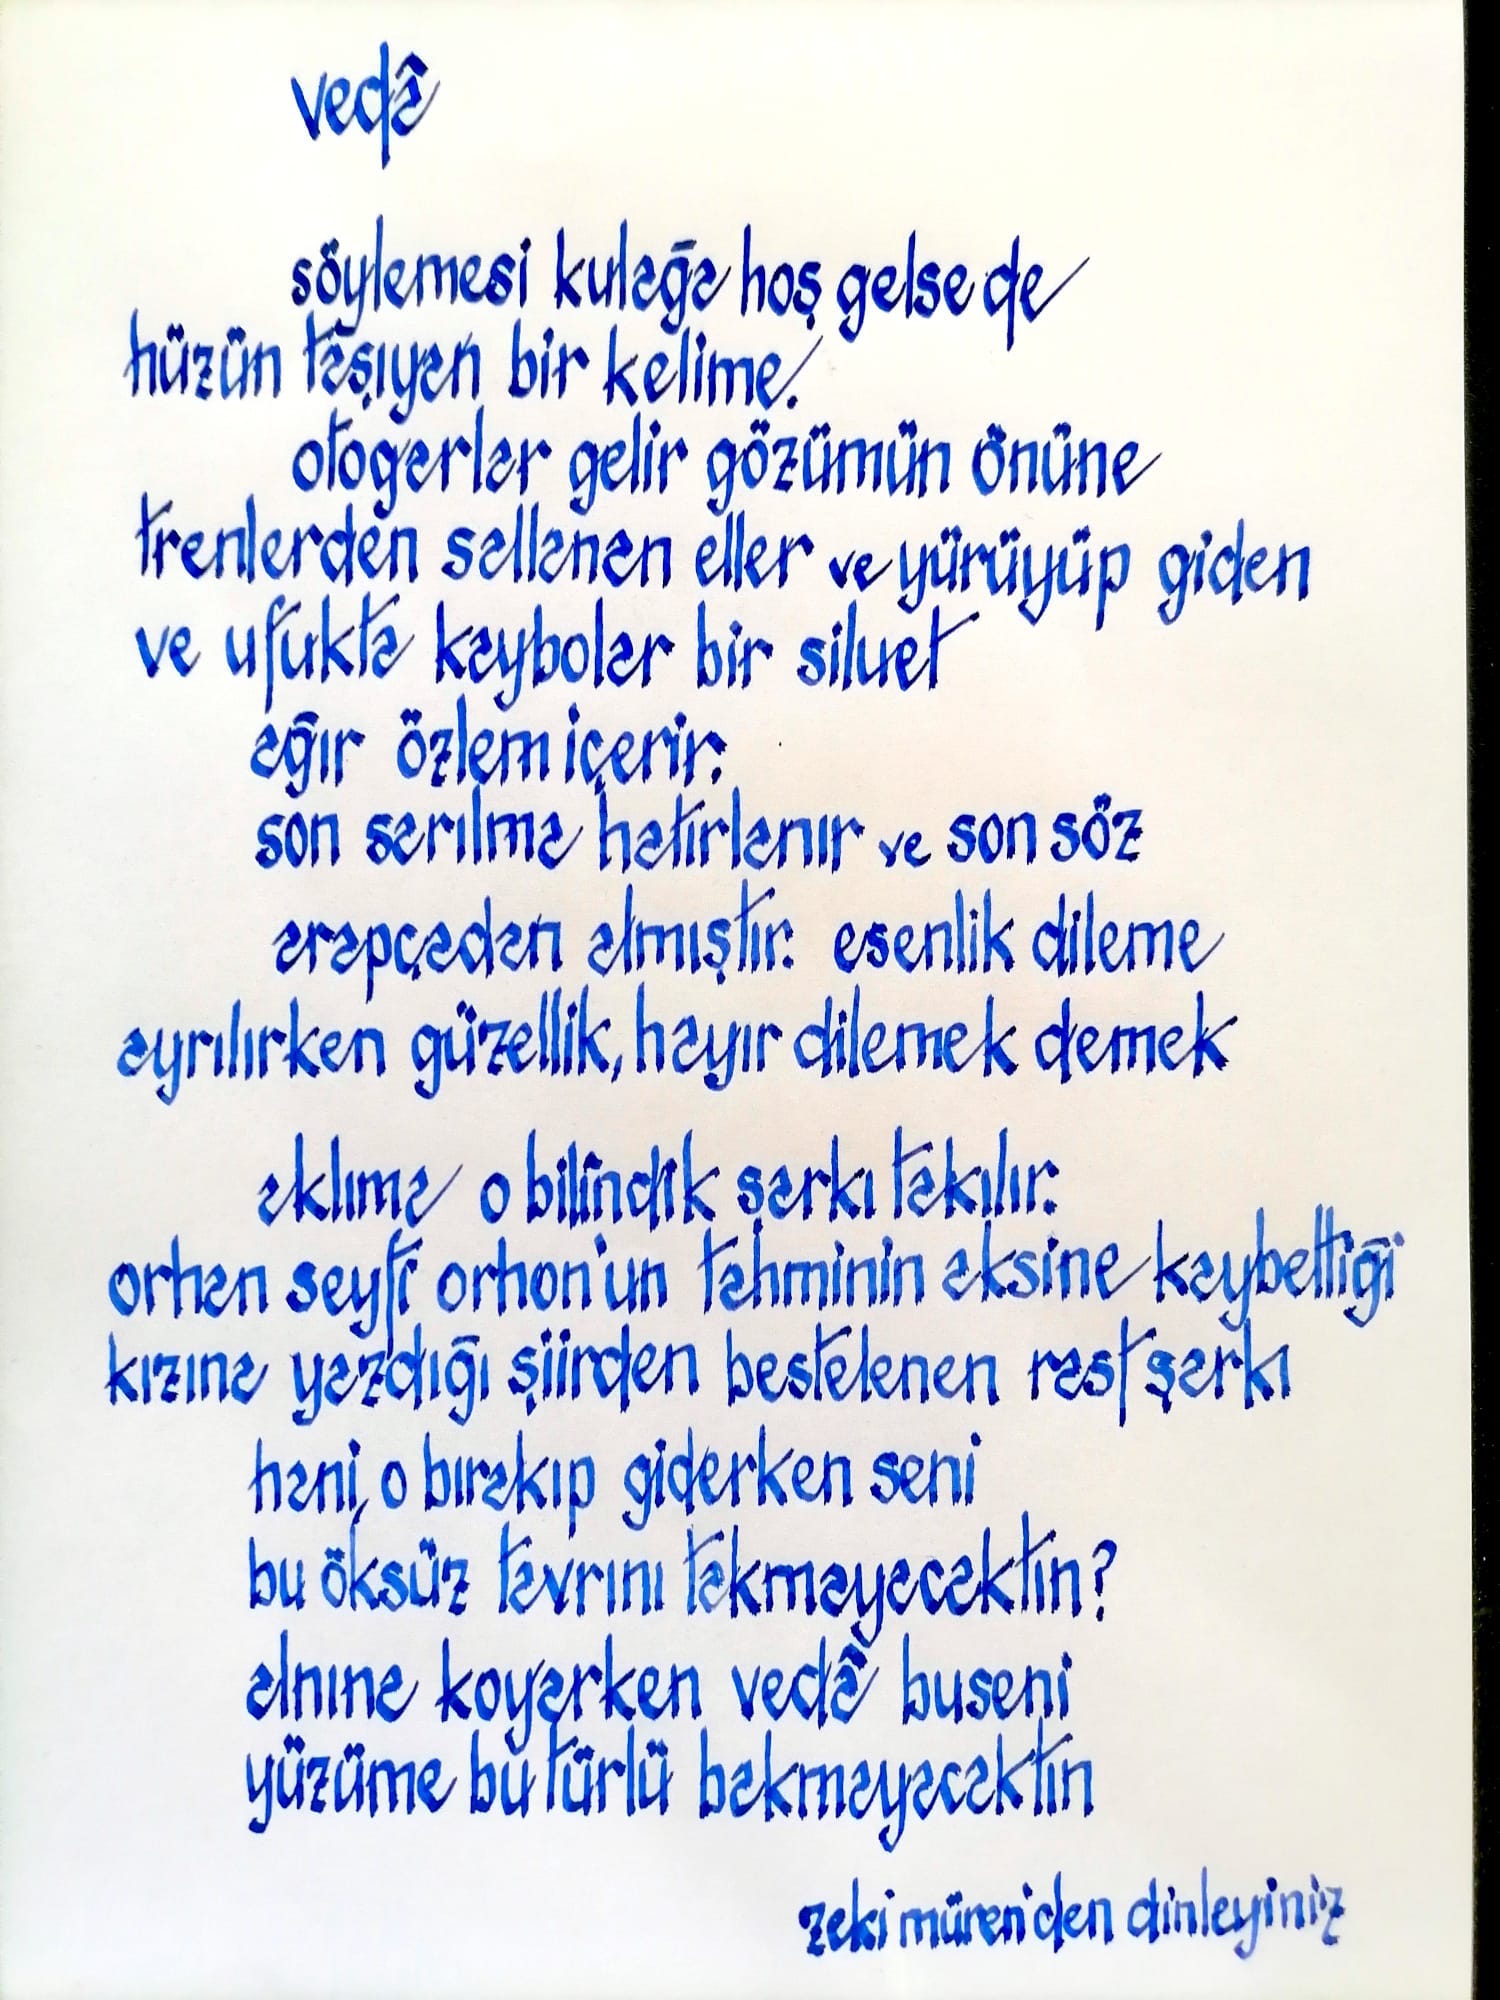 vedâ
söylemesi kulağa hoş gelse de
hüzün taşıyan bir kelime.
otogarlar gelir gözümün önüne
trenlerden sallanan eller ve yürüyüp giden
ve ufukta kaybolar bir siluet
ağır özlem içerir.
son sarılma hatırlanır ve son söz
arapçadan almıştır. esenlik dileme
ayrılırken güzellik, hayır dilemek demek
aklıma o bilindik şarkı takılır.
orhan seyfi orhon'un tahminin aksine kaybettiği
kızına yazdığı şiirden bestelenen rast şarkı
hani, o bırakıp giderken seni
bu öksüz tavrını takmayacaktın?
alnına koyarken vedâ buseni
yüzüme bu türlü bakmayacaktın
zeki müren'den dinleyiniz